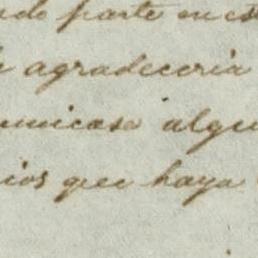 ndo parte en es
agradeceria
unicase algu
ios que haya